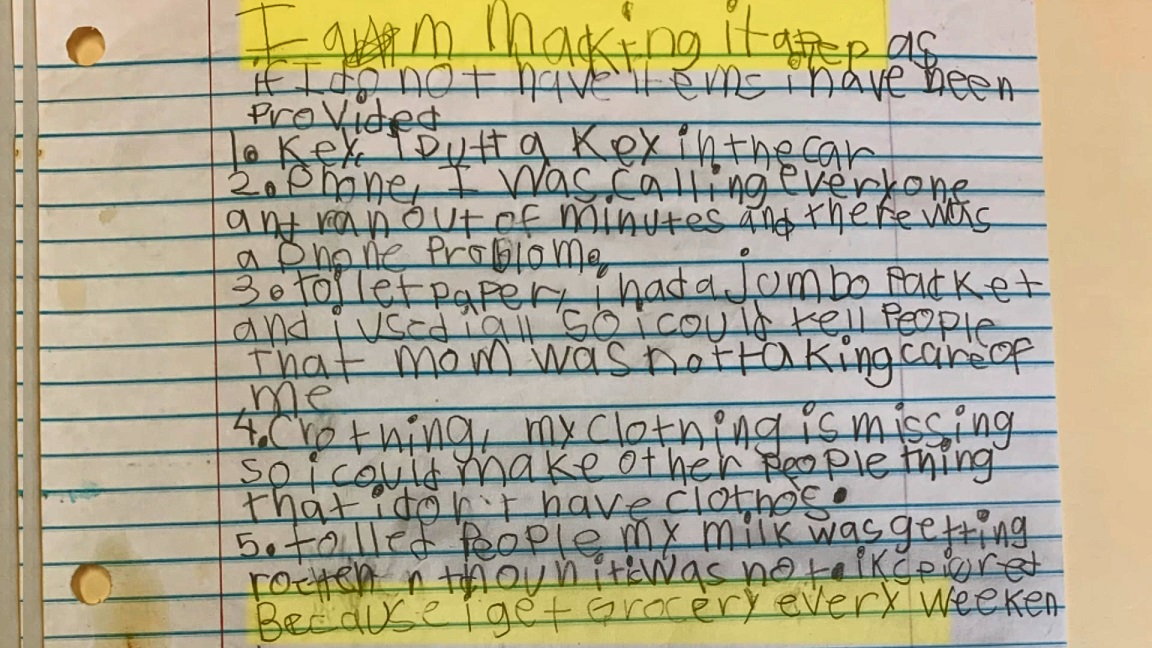 I am Macking it apep as
if I do not have items i have been
Provided
1. Kex. I Putt a Kex in the car
2. Phone, I was calling everyone
ant ran out of minutes and there was
a Phone Problome
3. toilet paper, i had a jumbo Packet
and i used i all so i could tell People
that mom was not taking care of
me
4. Clothing, my clothing is missing
so i could make other People thing
that i don't have clothos.
5. tolled People my milk was getting
rotten n it was not
Because i get Grocery every weeken